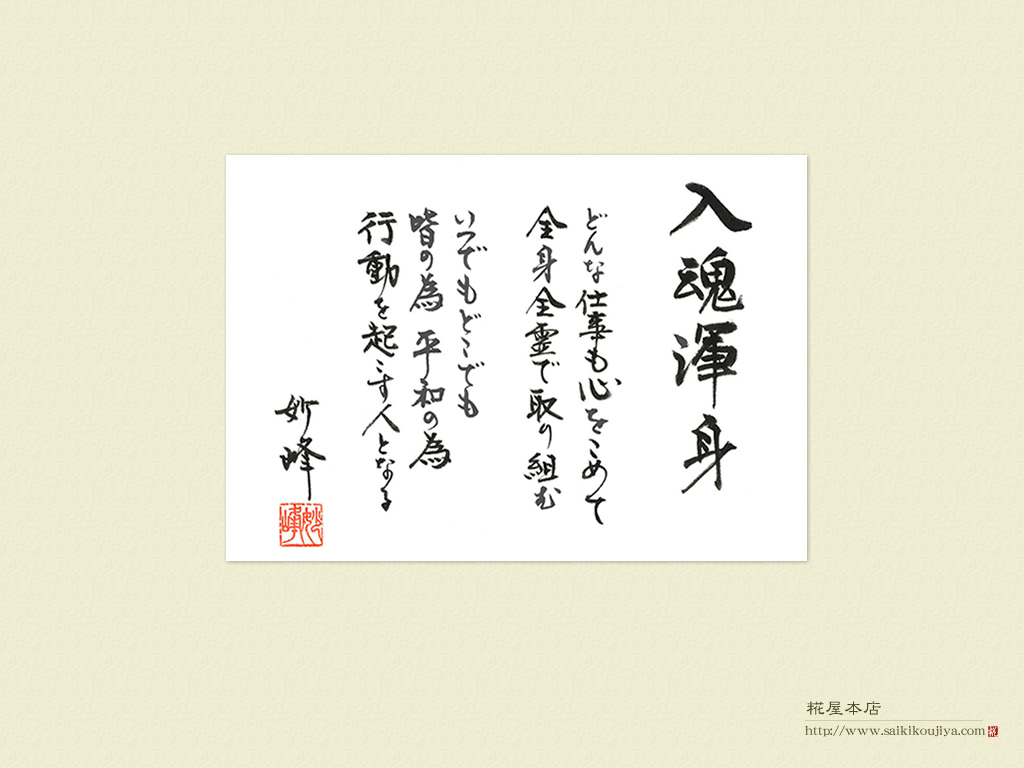 入魂渾身
どんな仕事も心をこめて
全身全霊で取り組む
いつでもどこでも
皆の為 平和の為
行動を起こす人となる
妙峰
妙峰
糀屋本店
http://www.saikikoujiya.com
糀